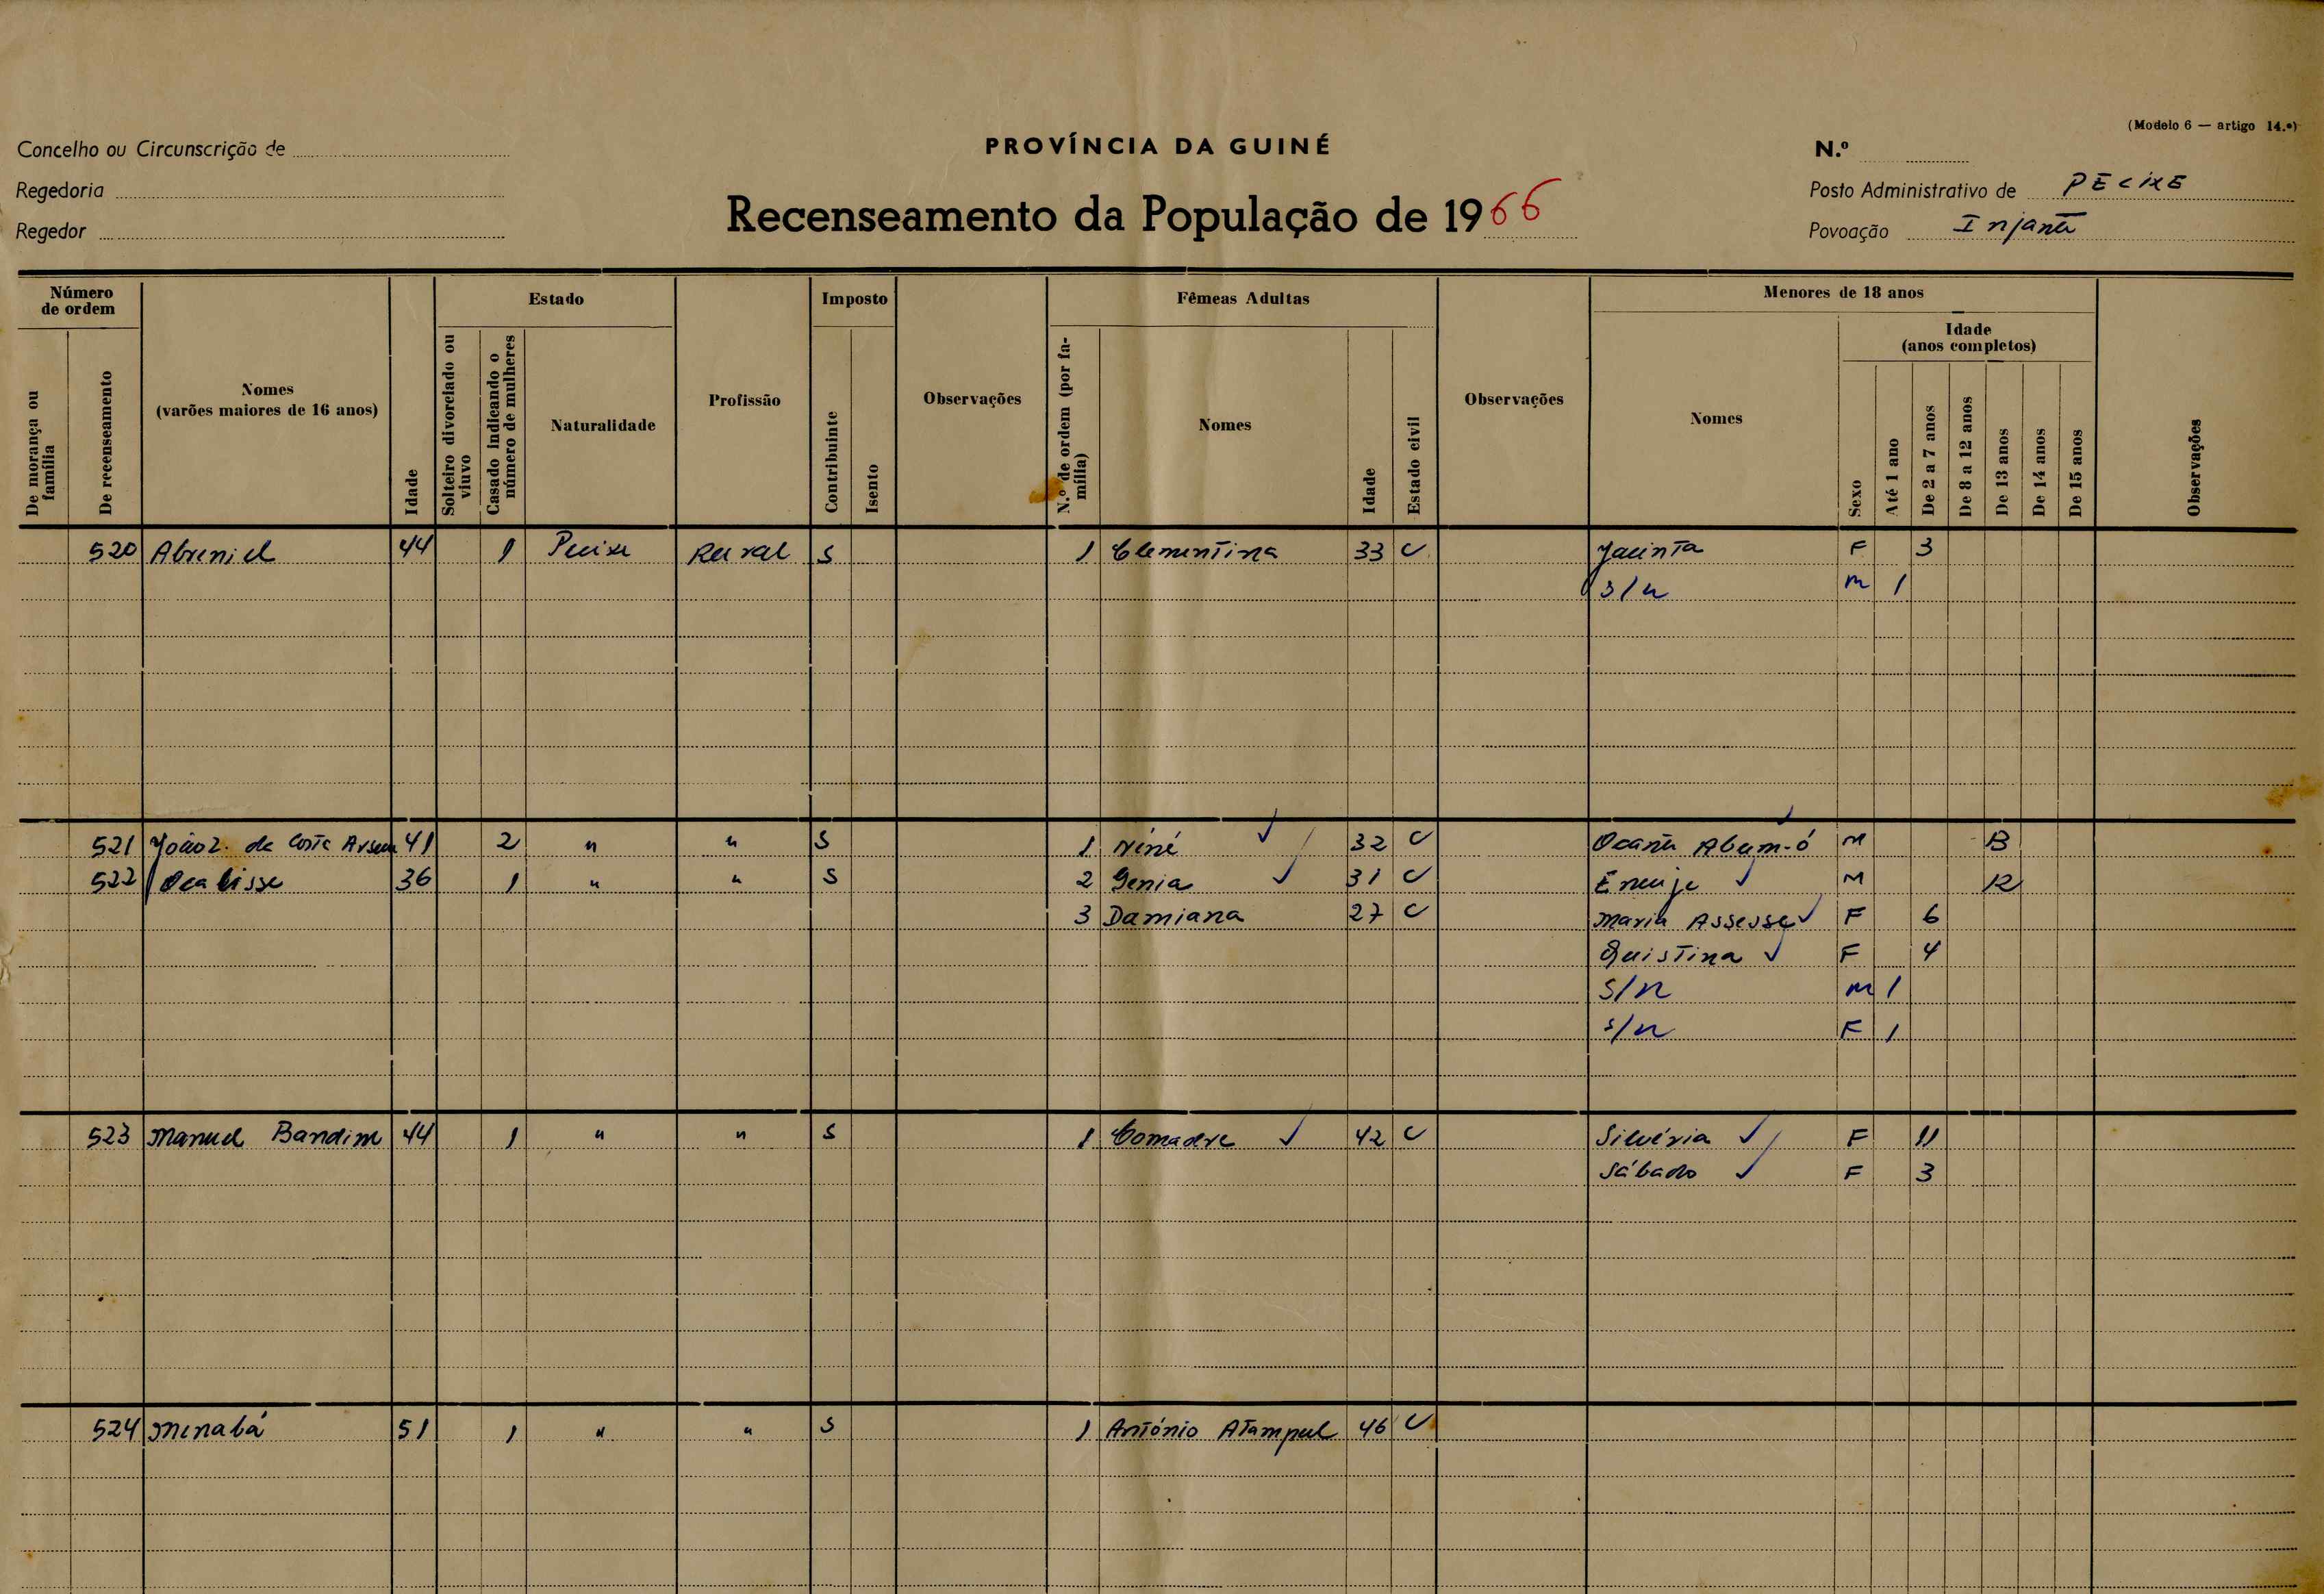 (Modelo 6 — artigo 14.º)
Concelho ou Circunscrição de
PROVÍNCIA DA GUINÉ
N.º
Regedoria
Recenseamento da População de 1966
Posto Administrativo de PECIXE
Regedor
Povoação Injanti
Número de ordem
Estado
Imposto
Fêmeas Adultas
Menores de 18 anos
De morança ou família
De recenseamento
Nomes (varões maiores de 16 anos)
Idade
Solteiro divorciado ou viuvo
Casado indicando o número de mulheres
Naturalidade
Profissão
Contribuinte
Isento
Observações
N.º de ordem (por família)
Nomes
Idade
Estado civil
Observações
Nomes
Sexo
Idade (anos completos)
Até 1 ano
De 2 a 7 anos
De 8 a 12 anos
De 13 anos
De 14 anos
De 15 anos
Observações
520 44 1 Pecixe Rural S 1 Clementina 33 C Jacinta F 3
S/n M 1
521 João 2. da Costa 41 2 " " S 1 Niné 32 C M 13
522 Ocalisse 36 1 " " S 2 Genia 31 C M 12
3 Damiana 27 C Maria Assessa F 6
Quistina F 4
S/n M 1
S/n F 1
523 Manuel Bandim 44 1 " " S 1 Comadre 42 C Silvéria F 11
Sábado F 3
524 Menabá 51 1 " " S 1 António Atampul 46 C